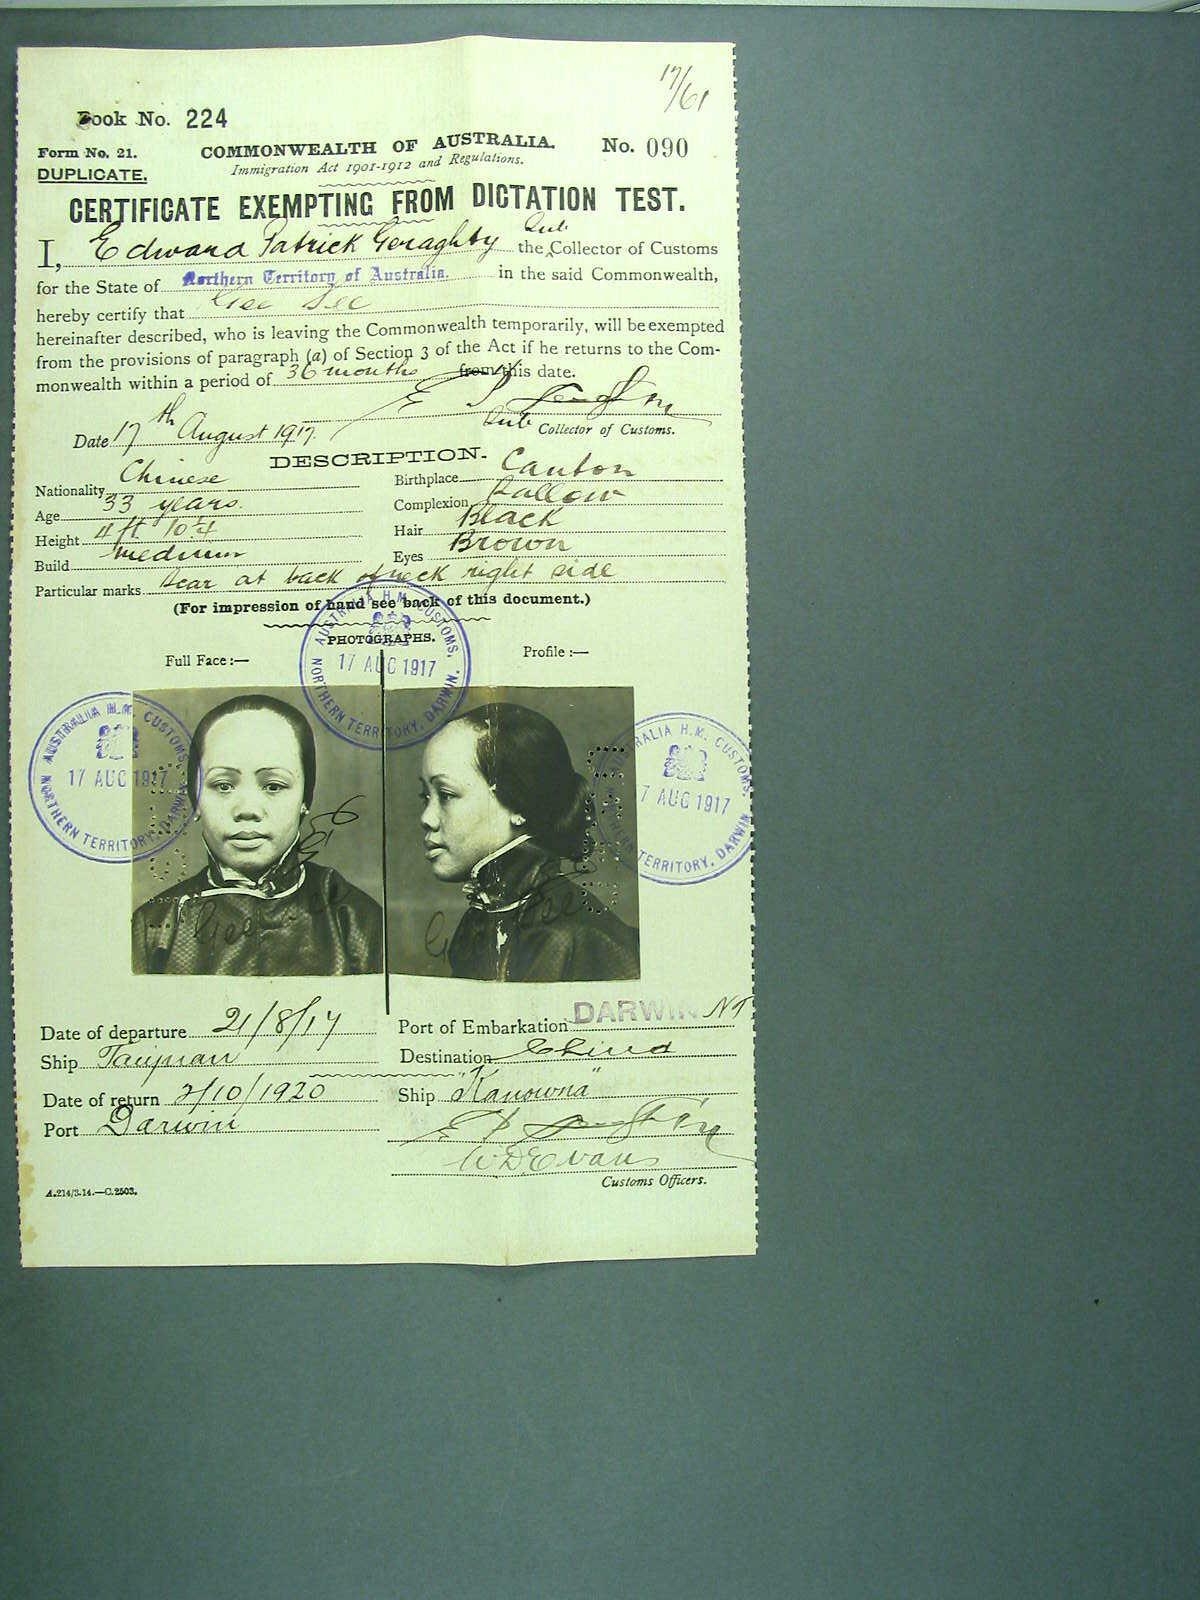 17/61
Book No. 224
Form No. 21. COMMONWEALTH OF AUSTRALIA. No. 090
DUPLICATE. Immigration Act 1901-1912 and Regulations.
CERTIFICATE EXEMPTING FROM DICTATION TEST.
I, Edward Patrick Geraghty the Sub Collector of Customs
for the State of Northern Territory of Australia. in the said Commonwealth,
hereby certify that Gee See
hereinafter described, who is leaving the Commonwealth temporarily, will be exempted
from the provisions of paragraph (a) of Section 3 of the Act if he returns to the Com-
monwealth within a period of 36 months from this date.
Date 17th August 1917. Sub Collector of Customs.
DESCRIPTION.
Nationality Chinese Birthplace Canton
Age 33 years. Complexion Sallow
Height 4 ft 10 1/4 Hair Black
Build medium Eyes Brown
Particular marks Scar at back of neck right side
(For impression of hand see back of this document.)
PHOTOGRAPHS.
Full Face:— Profile:—
AUSTRALIA H.M. CUSTOMS, 17 AUG 1917 NORTHERN TERRITORY, DARWIN.
AUSTRALIA H.M. CUSTOMS, 17 AUG 1917 NORTHERN TERRITORY, DARWIN
RALIA H.M. CUSTOMS, 7 AUG 1917 TERRITORY, DARWIN
Gee See Gee See
Date of departure 21/8/17 Port of Embarkation DARWIN NT
Ship Taiyuan Destination China
Date of return 2/10/1920 Ship "Kanowna"
Port Darwin
W D Evans
Customs Officers.
A.214/3.14.—C.2503.